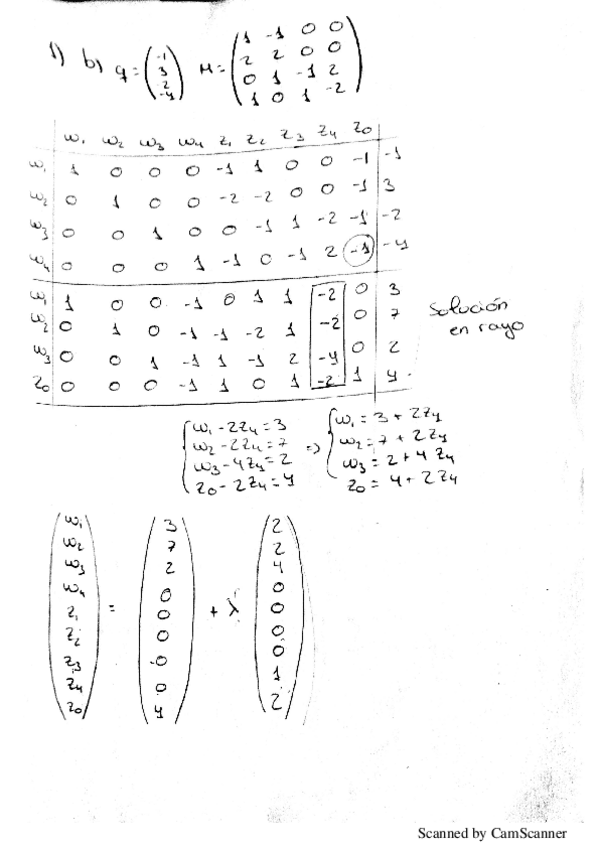 1) b) q = (-1 3 2 -4) M = (1 -1 0 0
2 2 0 0
0 1 -1 2
1 0 1 -2)
w₁ w₂ w₃ w₄ z₁ z₂ z₃ z₄ z₀
w₁ 1 0 0 0 -1 1 0 0 -1 -1
w₂ 0 1 0 0 -2 -2 0 0 -1 3
w₃ 0 0 1 0 0 -1 1 -2 -1 -2
w₄ 0 0 0 1 -1 0 -1 2 -1 -4
w₁ 1 0 0 -1 0 1 1 -2 0 3
w₂ 0 1 0 -1 -1 -2 1 -2 0 7
w₃ 0 0 1 -1 1 -1 2 -4 0 2
z₀ 0 0 0 -1 1 0 1 -2 1 4
Solución
en rayo
w₁ - 2z₄ = 3 => w₁ = 3 + 2z₄
w₂ - 2z₄ = 7 w₂ = 7 + 2z₄
w₃ - 4z₄ = 2 w₃ = 2 + 4z₄
z₀ - 2z₄ = 4 z₀ = 4 + 2z₄
w₁ 3 2
w₂ 7 2
w₃ 2 4
w₄ 0 0
z₁ = 0 + λ 0
z₂ 0 0
z₃ 0 0
z₄ 0 1
z₀ 4 2
Scanned by CamScanner